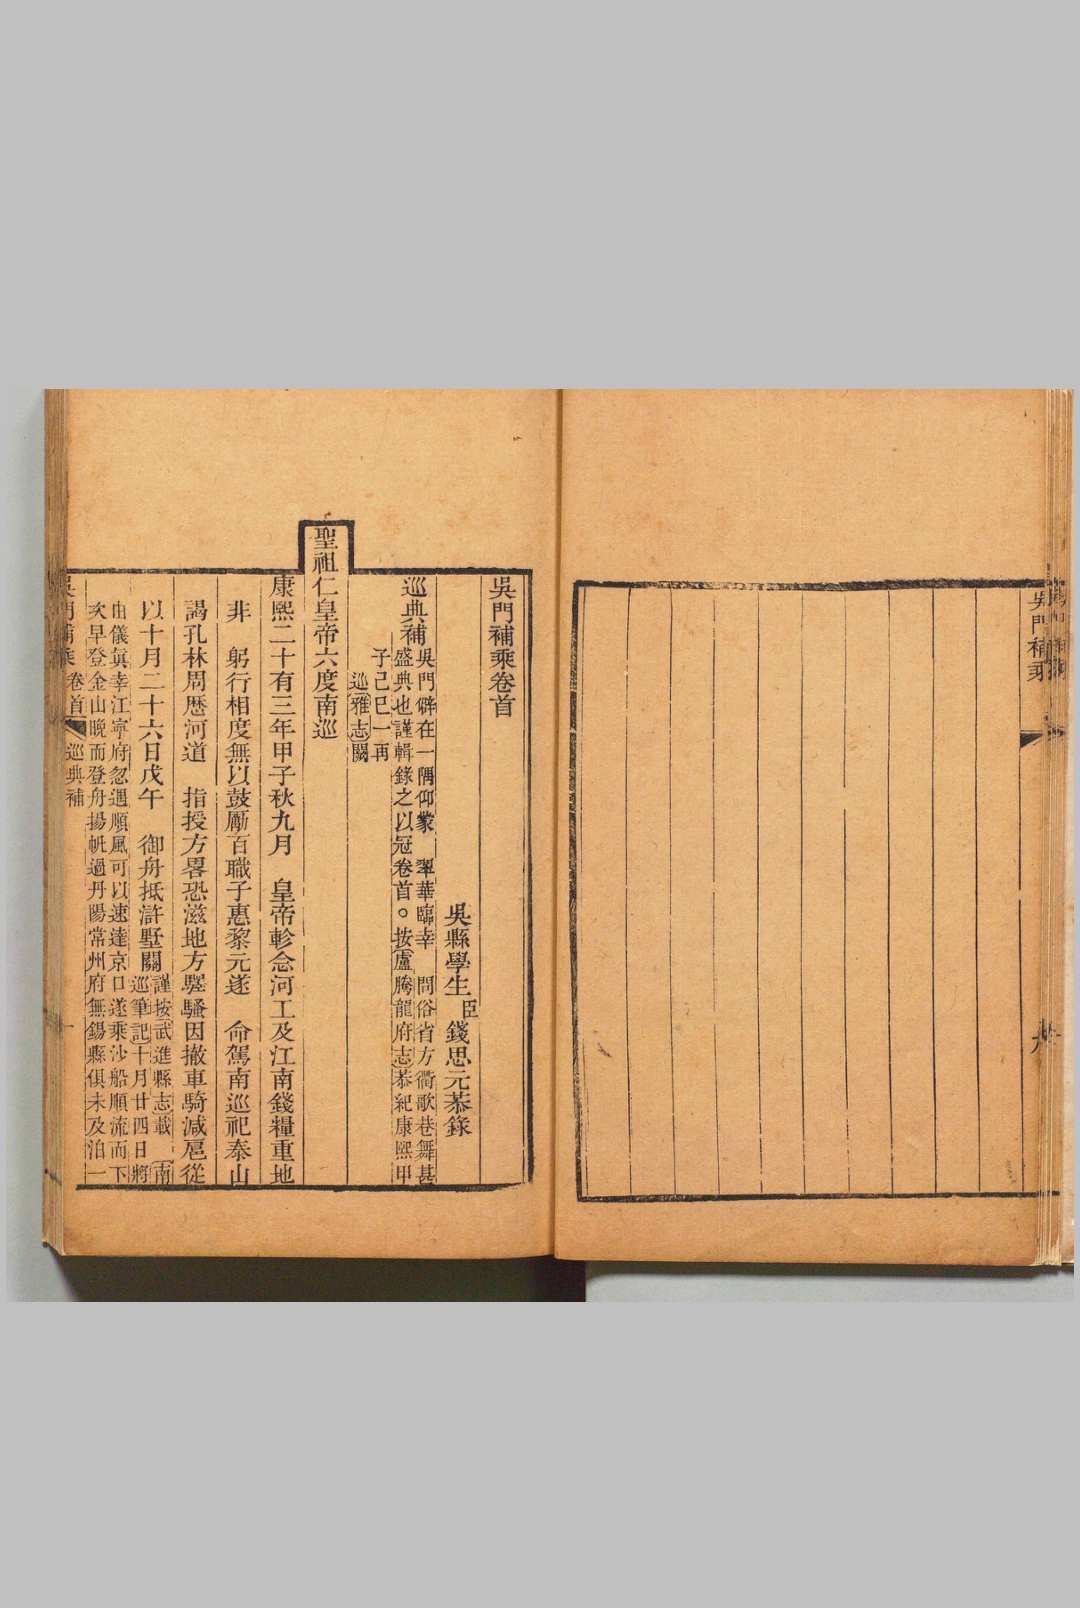 吳門補乘
吳門補乘卷首
吳縣學生臣錢思元恭錄
巡典補
吳門僻在一隅仰蒙 翠華臨幸 問俗省方衢歌巷舞甚
盛典也謹輯錄之以冠卷首。按盧騰龍府志恭紀康熙甲
子己巳一再
巡雅志闕
聖祖仁皇帝六度南巡
康熙二十有三年甲子秋九月 皇帝軫念河工及江南錢糧重地
非 躬行相度無以鼓勵百職子惠黎元遂 命駕南巡祀泰山
謁孔林周歷河道 指授方畧恐滋地方騷因撤車騎減扈從
以十月二十六日戊午 御舟抵滸墅關
謹按武進縣志載 南
巡筆記十月廿四日將
由儀眞幸江寧府忽遇順風可以速達京口遂乘沙船順流而下
次早登金山晚而登舟揚帆過丹陽常州府無錫縣俱未及泊一
吳門補乘 卷首 巡典補 一